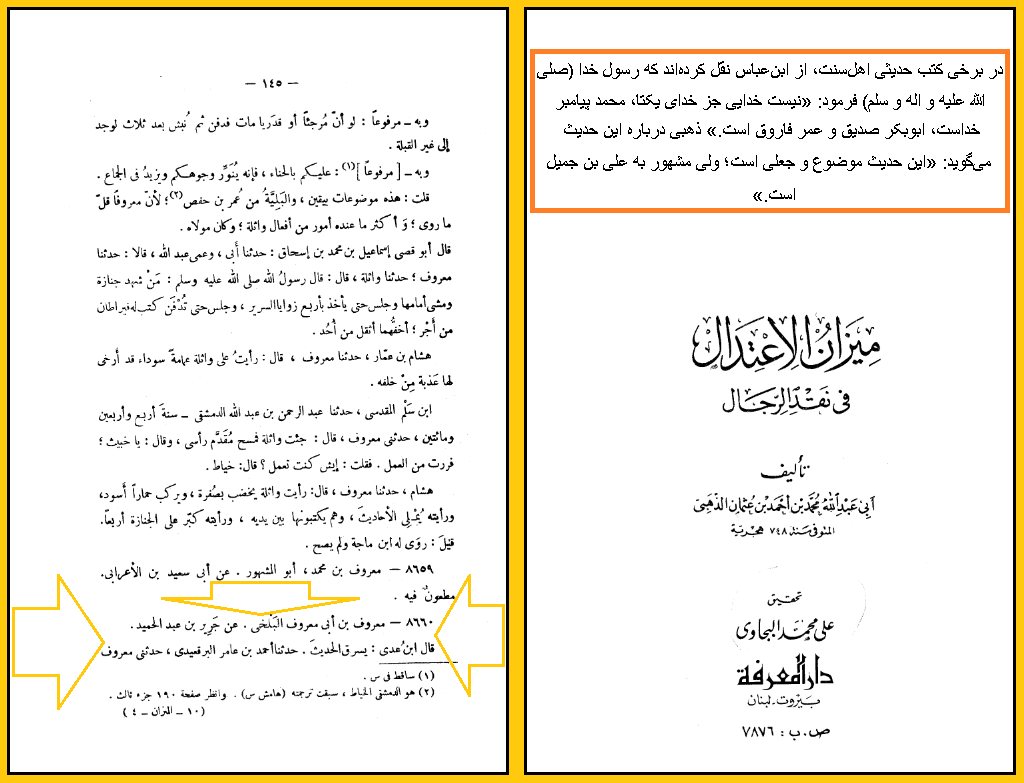 — ١٤٥ —
وبه ـ مرفوعاً : لو أنّ مُرجئاً أو قدَريا مات فدفن ثم نُبش بعد ثلاث لوجد
إلى غير القبلة .
وبه ـ [ مرفوعاً ](١) : عليكم بالحناء ، فإنه يُنَوِّر وجوهكم ويزيدُ فى الجماع .
قلت : هذه موضوعات بيقين ، والبَلِيَّةُ من عُمر بن حفص(٢)؛ لأنّ معروفًا قلّ
ما روى ؛ وَ أكثر ما عنده أمور من أفعال واثلة ؛ وكان مولاه .
قال أبو قصى إسماعيل بن محمد بن إسحاق : حدثنا أبى ، وعمى عبد الله ، قالا : حدثنا
معروف ؛ حدثنا واثلة ، قال : قال رسولُ الله صلى الله عليه وسلم : مَنْ شهد جنازة
ومشى أمامها وجلس حتى يأخذ بأربع زوايا السرير ، وجلس حتى تُدْفَن كتب له قيراطان
من أَجْر ؛ أخفُّهما أثقل من أُحُد .
هشام بن عمّار ، حدثنا معروف ، قال : رأيتُ على واثلة عمامةً سوداء قد أرخى
لها عَذبة مِنْ خلفه .
ابن سَلْم المقدسى ، حدثنا عبد الرحمن بن عبد الله الدمشقى ـ سنةَ أربع وأربعين
ومائتين ، حدثنى معروف ، قال : جئت واثلة فمسح مُقَدَّم رأسى ، وقال : يا خبيث ؛
فررت من العمل . فقلت : إيش كنت تعمل ؟ قال : خياط .
هشام ، حدثنا معروف ، قال : رأيت واثلة يخضب بصُفرة ، ويركب حماراً أسود،
ورأيته يُمْلِى الأحاديثَ ، وهم يكتبونها بين يديه ، ورأيته كبّر على الجنازة أربعاً.
قيلَ : روَى له ابن ماجة ولم يصح .
٨٦٥٩ — معروف بن محمد ، أبو المشهور . عن أبى سعيد بن الأعرابى.
مطعونٌ فيه .
٨٦٦٠ — معروف بن أبى معروف البَلْخى . عن جَرِير بن عبد الحميد .
قال ابنُ عدى : يسرق الحديثَ . حدثنا أحمد بن عامر البرقعيدى ، حدثنى معروف
(١) ساقط فى س .
(٢) هو الدمشقى الخياط ، سبقت ترجمته (هامش س) . وانظر صفحة ١٩٠ جزء ثالث .
(١٠ ــ الميزان ــ ٤)
در برخی کتب حدیثی اهل‌سنت، از ابن‌عباس نقل کرده‌اند که رسول خدا (صلی
الله علیه و اله و سلم) فرمود: «نیست خدایی جز خدای یکتا، محمد پیامبر
خداست، ابوبکر صدیق و عمر فاروق است.» ذهبی درباره این حدیث
می‌گوید: «این حدیث موضوع و جعلی است؛ ولی مشهور به علی بن جمیل
است.»
مِيزَانُ الِاعْتِدَال
فى نَقْدِ الرِّجَال
تأليف
أَبِى عَبْدِ اللهِ مُحَمَّدِ بْنِ أَحْمَدَ بْنِ عُثْمَانَ الذَّهَبِىّ
المتوفى سَنَة ٧٤٨ هِجْرِيَّة
تحقيق
على محمد البجاوى
دار المعرفة
بَيْرُوت - لبنان
ص.ب : ٧٨٧٦